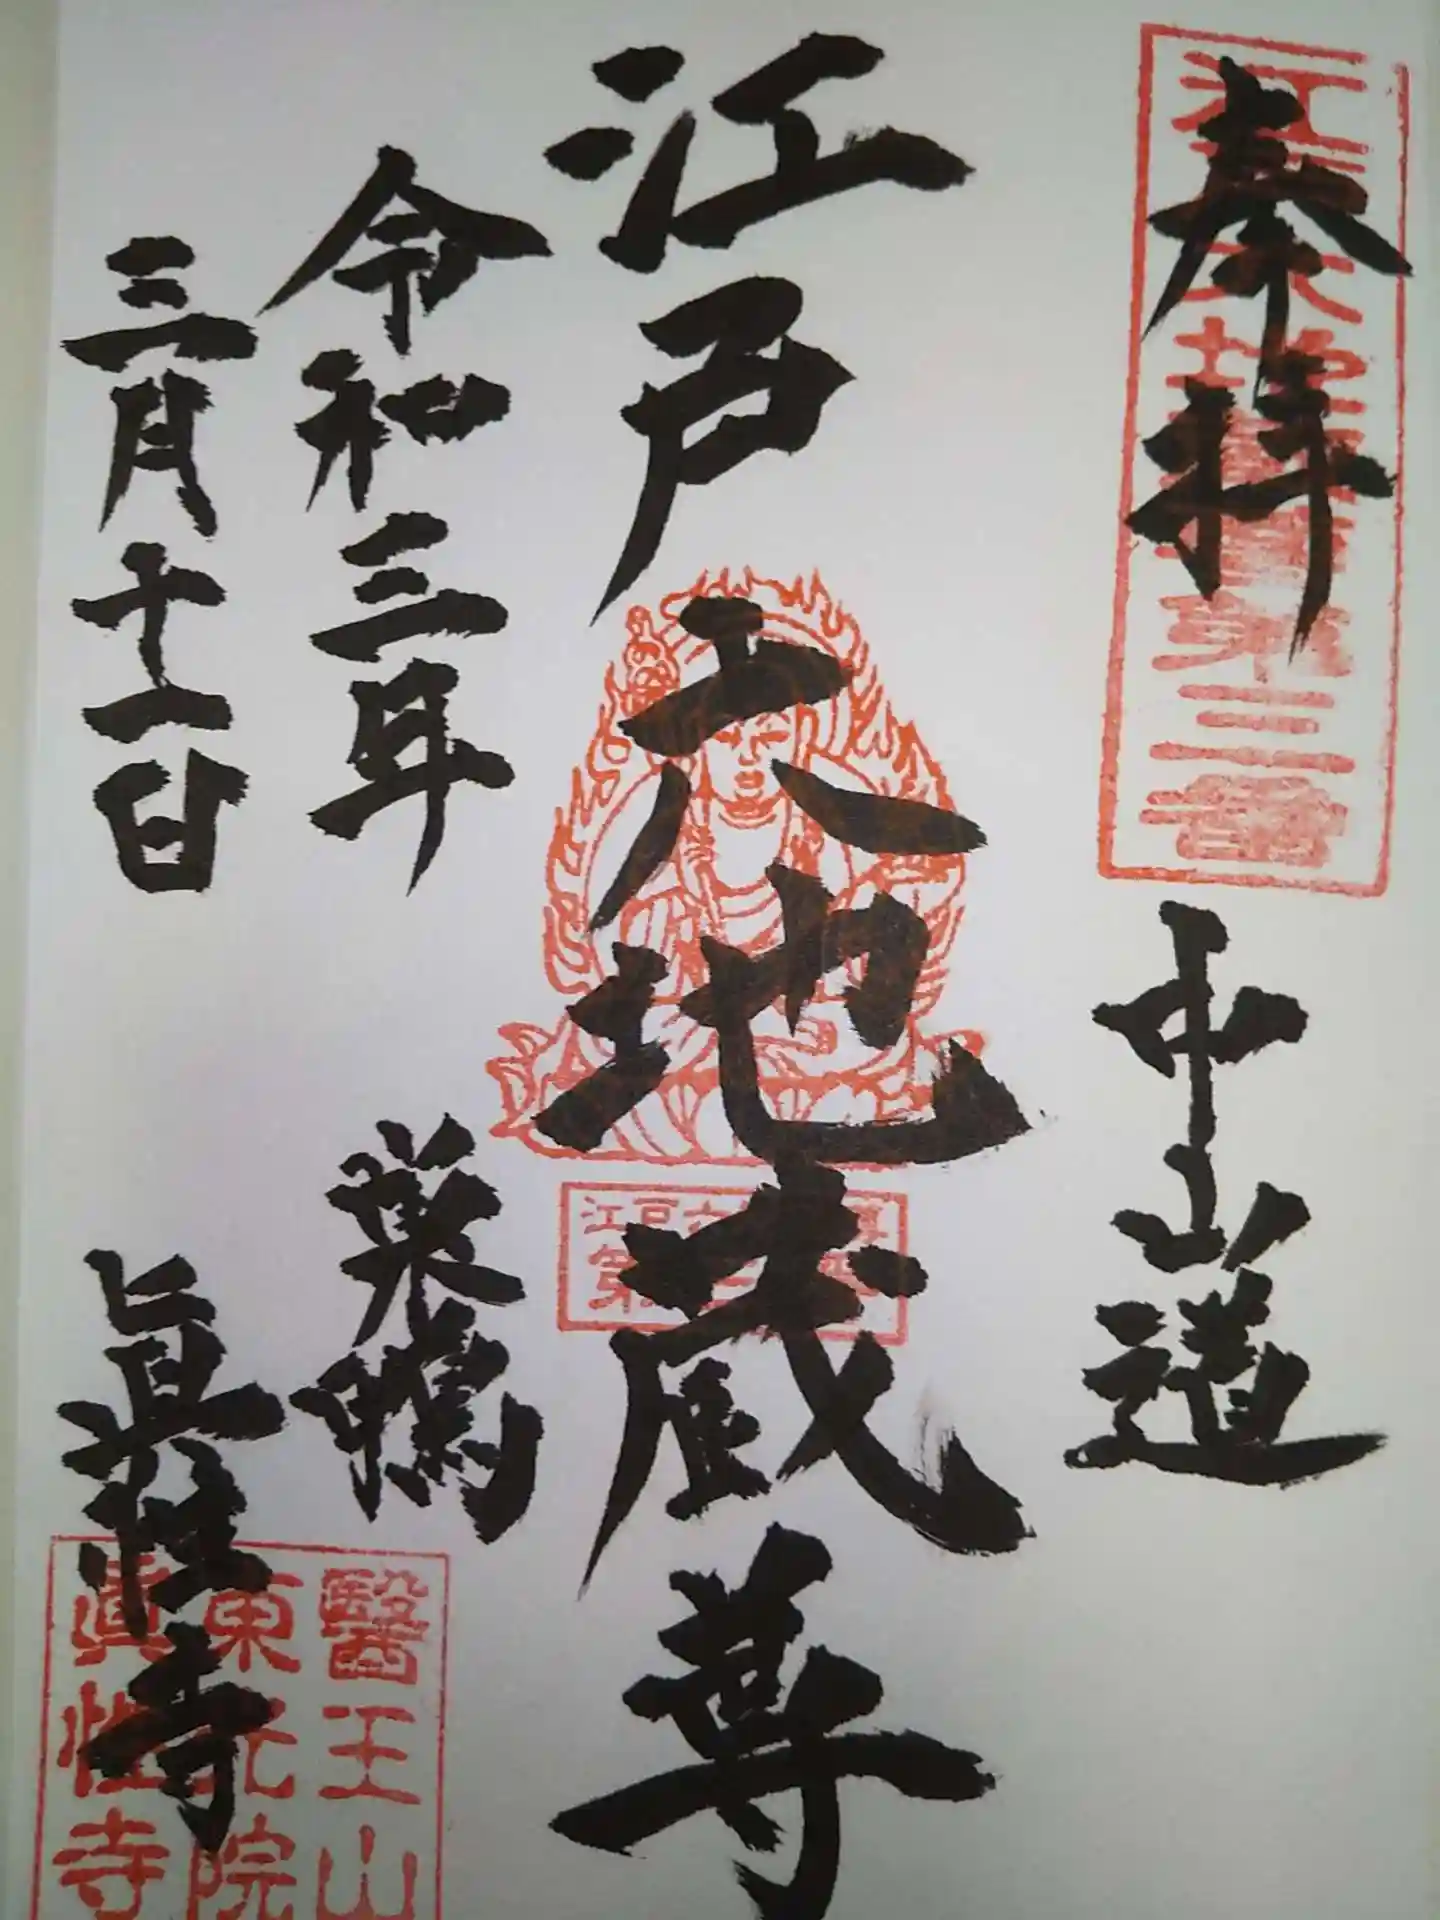 奉拝
中山道
江戸六地蔵尊
令和三年
三月十一日
巣鴨
眞性寺
江戸六地蔵尊第三番
醫王山
東光院
眞性寺